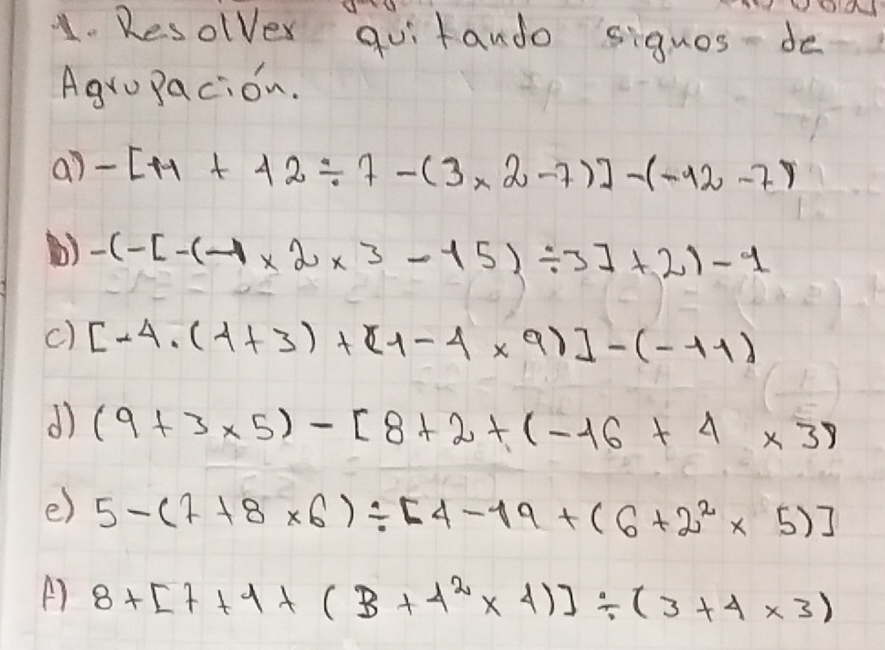 1. Resolver quitando signos de
Agrupación.
a) -[11 + 42 ÷ 7 -(3 × 2 -7)] -(-12 -7)
b) -(-[-(-1 × 2 × 3 - 15) ÷3] +2) - 1
c) [-4.(4+3) + (1 - 4 × 9)] -(-11)
d) (9 + 3 × 5) - [8 + 2 + (-16 + 4 × 3)
e) 5 -(7 +8 ×6) ÷ [4 -19 + (6 + 2² × 5)]
f) 8 + [7 + 1 + (3 + 4² × 4)] ÷ (3 + 4 × 3)